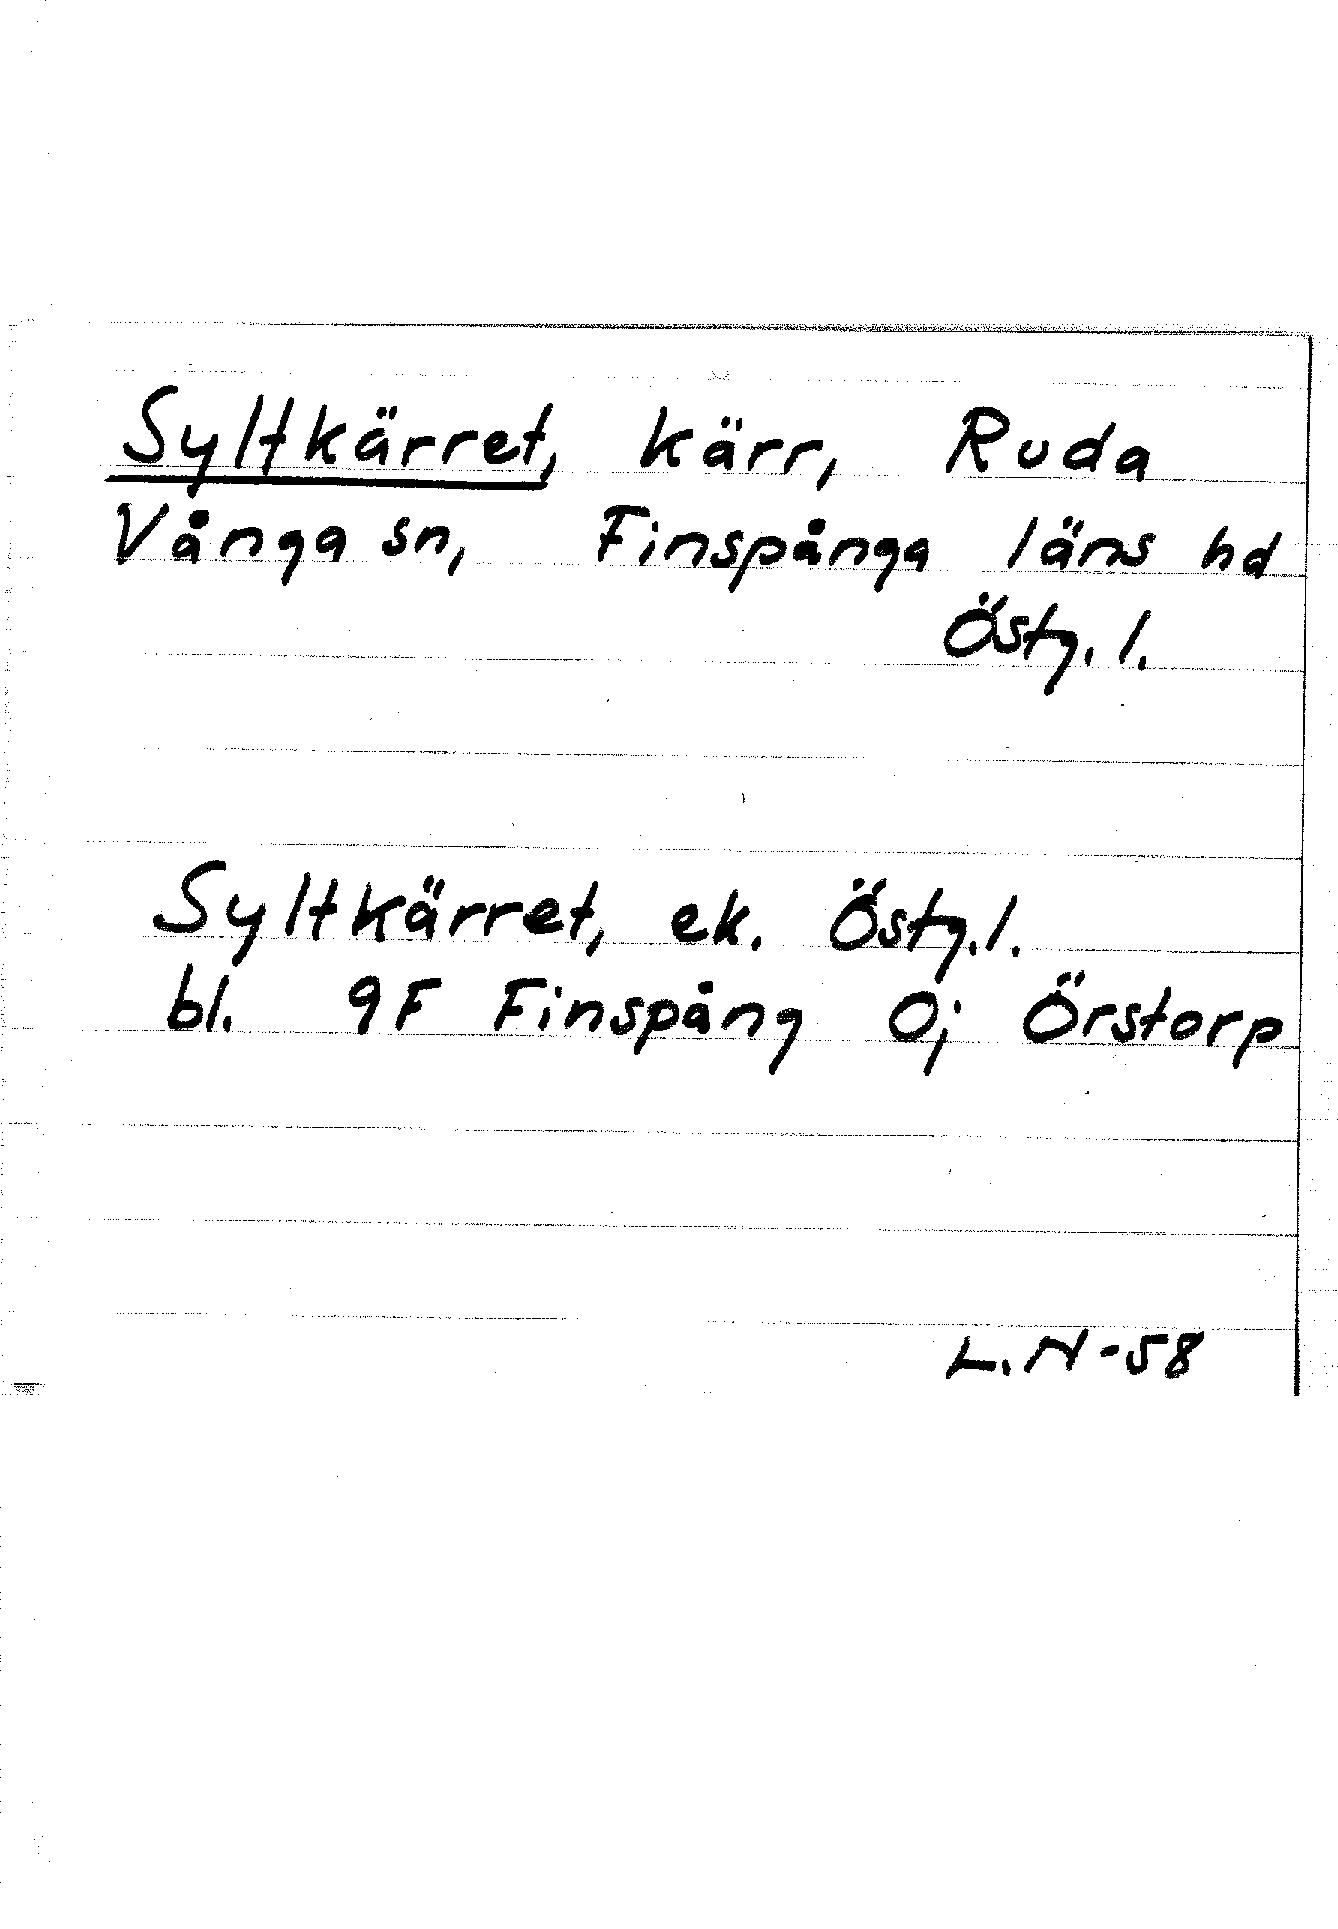 Syltkärret, kärr, Ruda
Vånga sn, Finspånga läns hd
Östg. l.
Syltkärret, ek. Östg. l.
bl. 9F Finspång 0j Örstorp
L. N-58